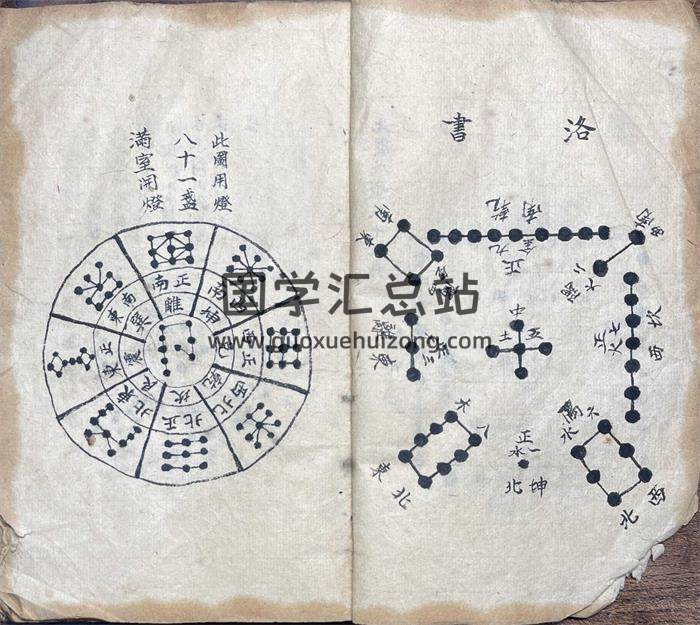 洛書
南乾
正九金
東南
西南
中
五土
七火正
坎西
離東
八木
東北
正一水
坤北
六水
西北
此圖用燈
八十一盞
滿室開燈
正南
離
坤
正西
兌
西北
乾
正北
坎
東北
艮
正東
震
東南
巽
国学汇总站
www.guoxuehuizong.com